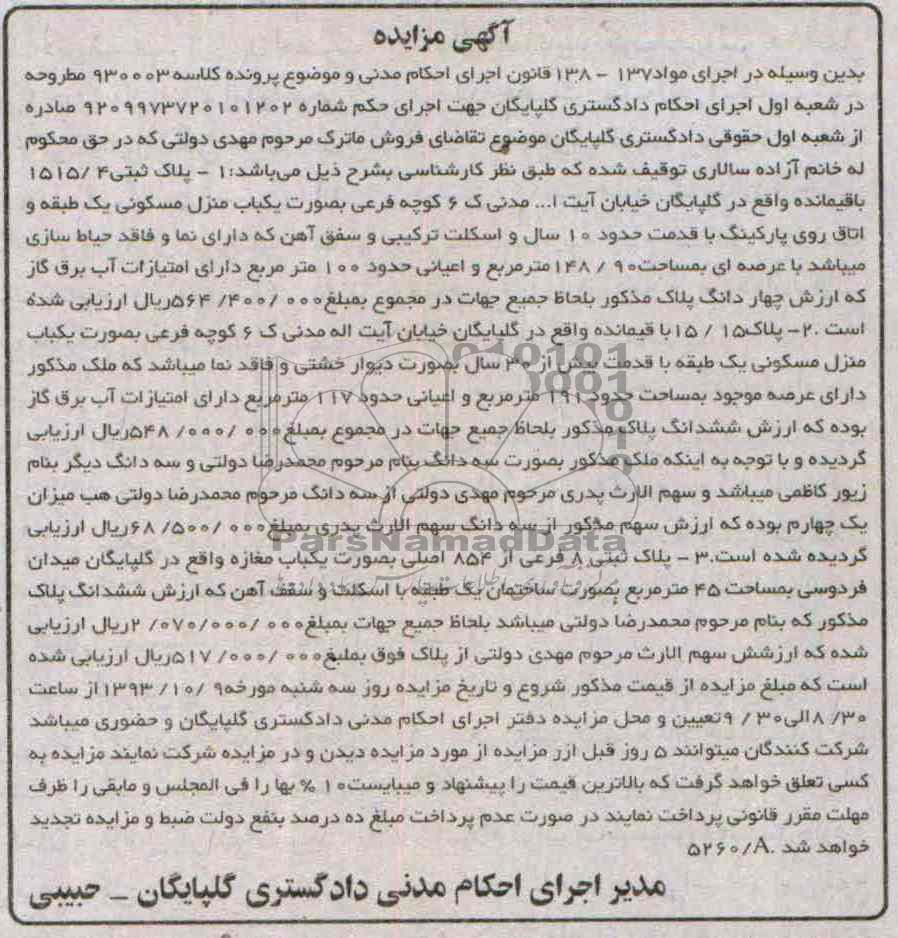 آگهی مزایده
بدین وسیله در اجرای مواد۱۳۷ - ۱۳۸ قانون اجرای احکام مدنی و موضوع پرونده کلاسه ۹۳۰۰۰۳ مطروحه
در شعبه اول اجرای احکام دادگستری گلپایگان جهت اجرای حکم شماره ۹۲۰۹۹۷۳۷۲۰۱۰۱۲۰۲ صادره
از شعبه اول حقوقی دادگستری گلپایگان موضوع تقاضای فروش ماترک مرحوم مهدی دولتی که در حق محکوم
له خانم آزاده سالاری توقیف شده که طبق نظر کارشناسی بشرح ذیل می‌باشد:۱ - پلاک ثبتی۴ /۱۵۱۵
باقیمانده واقع در گلپایگان خیابان آیت ا... مدنی ک ۶ کوچه فرعی بصورت یکباب منزل مسکونی یک طبقه و
اتاق روی پارکینگ با قدمت حدود ۱۰ سال و اسکلت ترکیبی و سقق آهن که دارای نما و فاقد حیاط سازی
میباشد با عرصه ای بمساحت۹۰ / ۱۴۸مترمربع و اعیانی حدود ۱۰۰ متر مربع دارای امتیازات آب برق گاز
که ارزش چهار دانگ پلاک مذکور بلحاظ جمیع جهات در مجموع بمبلغ۰۰۰ /۴۰۰ /۵۶۴ریال ارزیابی شده
است .۲- پلاک۱۵ / ۱۵با قیمانده واقع در گلپایگان خیابان آیت اله مدنی ک ۶ کوچه فرعی بصورت یکباب
منزل مسکونی یک طبقه با قدمت بیش از ۳۰ سال بصورت دیوار خشتی و فاقد نما میباشد که ملک مذکور
دارای عرصه موجود بمساحت حدود ۱۹۱ مترمربع و اعیانی حدود ۱۱۷ مترمربع دارای امتیازات آب برق گاز
بوده که ارزش ششدانگ پلاک مذکور بلحاظ جمیع جهات در مجموع بمبلغ۰۰۰ /۰۰۰ /۵۴۸ریال ارزیابی
گردیده و با توجه به اینکه ملک مذکور بصورت سه دانگ بنام مرحوم محمدرضا دولتی و سه دانگ دیگر بنام
زیور کاظمی میباشد و سهم الارث پدری مرحوم مهدی دولتی از سه دانگ مرحوم محمدرضا دولتی هب میزان
یک چهارم بوده که ارزش سهم مذکور از سه دانگ سهم الارث پدری بمبلغ۰۰۰ /۵۰۰ /۶۸ریال ارزیابی
گردیده شده است.۳ - پلاک ثبتی ۸ فرعی از ۸۵۴ اصلی بصورت یکباب مغازه واقع در گلپایگان میدان
فردوسی بمساحت ۴۵ مترمربع بصورت ساختمان یک طبقه با اسکلت و سقف آهن که ارزش ششدانگ پلاک
مذکور که بنام مرحوم محمدرضا دولتی میباشد بلحاظ جمیع جهات بمبلغ۰۰۰ /۲/۰۷۰/۰۰۰ریال ارزیابی
شده که ارزشش سهم الارث مرحوم مهدی دولتی از پلاک فوق بملبغ۰۰۰ /۰۰۰ /۵۱۷ریال ارزیابی شده
است که مبلغ مزایده از قیمت مذکور شروع و تاریخ مزایده روز سه شنبه مورخه۹ /۱۰ /۱۳۹۳از ساعت
۳۰/ ۸الی۳۰ / ۹تعیین و محل مزایده دفتر اجرای احکام مدنی دادگستری گلپایگان و حضوری میباشد
شرکت کنندگان میتوانند ۵ روز قبل ازر مزایده از مورد مزایده دیدن و در مزایده شرکت نمایند مزایده به
کسی تعلق خواهد گرفت که بالاترین قیمت را پیشنهاد و میبایست۱۰ % بها را فی المجلس و مابقی را ظرف
مهلت مقرر قانونی پرداخت نمایند در صورت عدم پرداخت مبلغ ده درصد بنفع دولت ضبط و مزایده تجدید
خواهد شد .۵۲۶۰/A
مدیر اجرای احکام مدنی دادگستری گلپایگان _ حبیبی
ParsNamadData